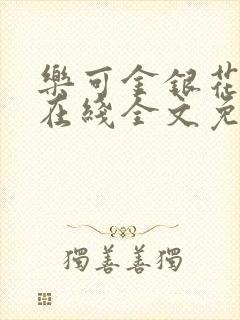 樂可金銀花
在綫全文免
獨善善獨